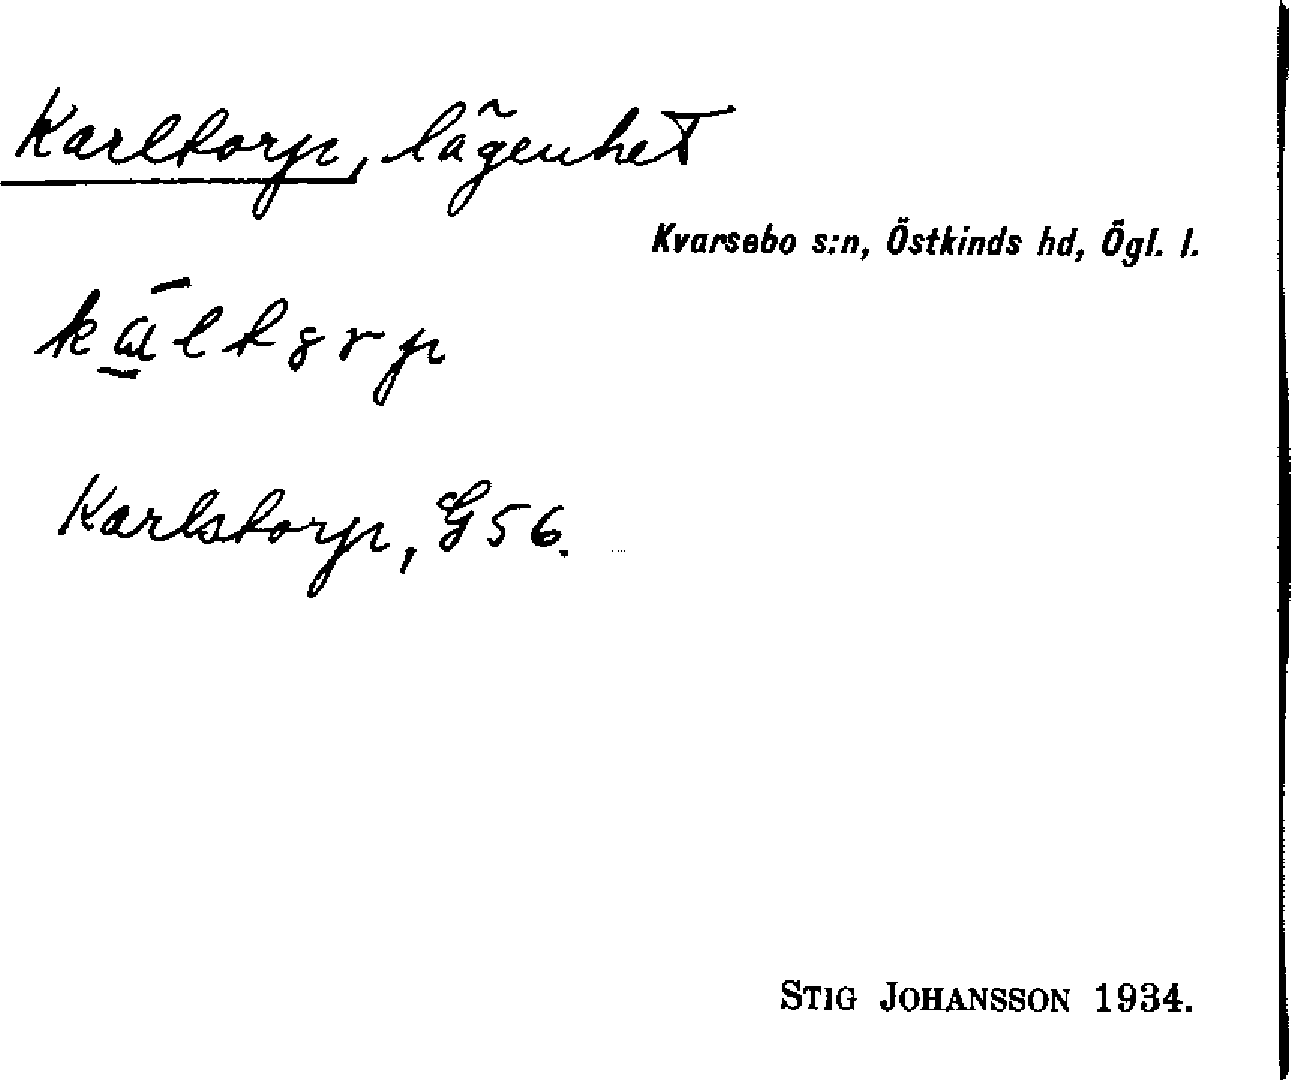 Karltorp, lägenhet
Kvarsebo s:n, Östkinds hd, Ögl. l.
Karlstorp, G 56.
STIG JOHANSSON 1934.